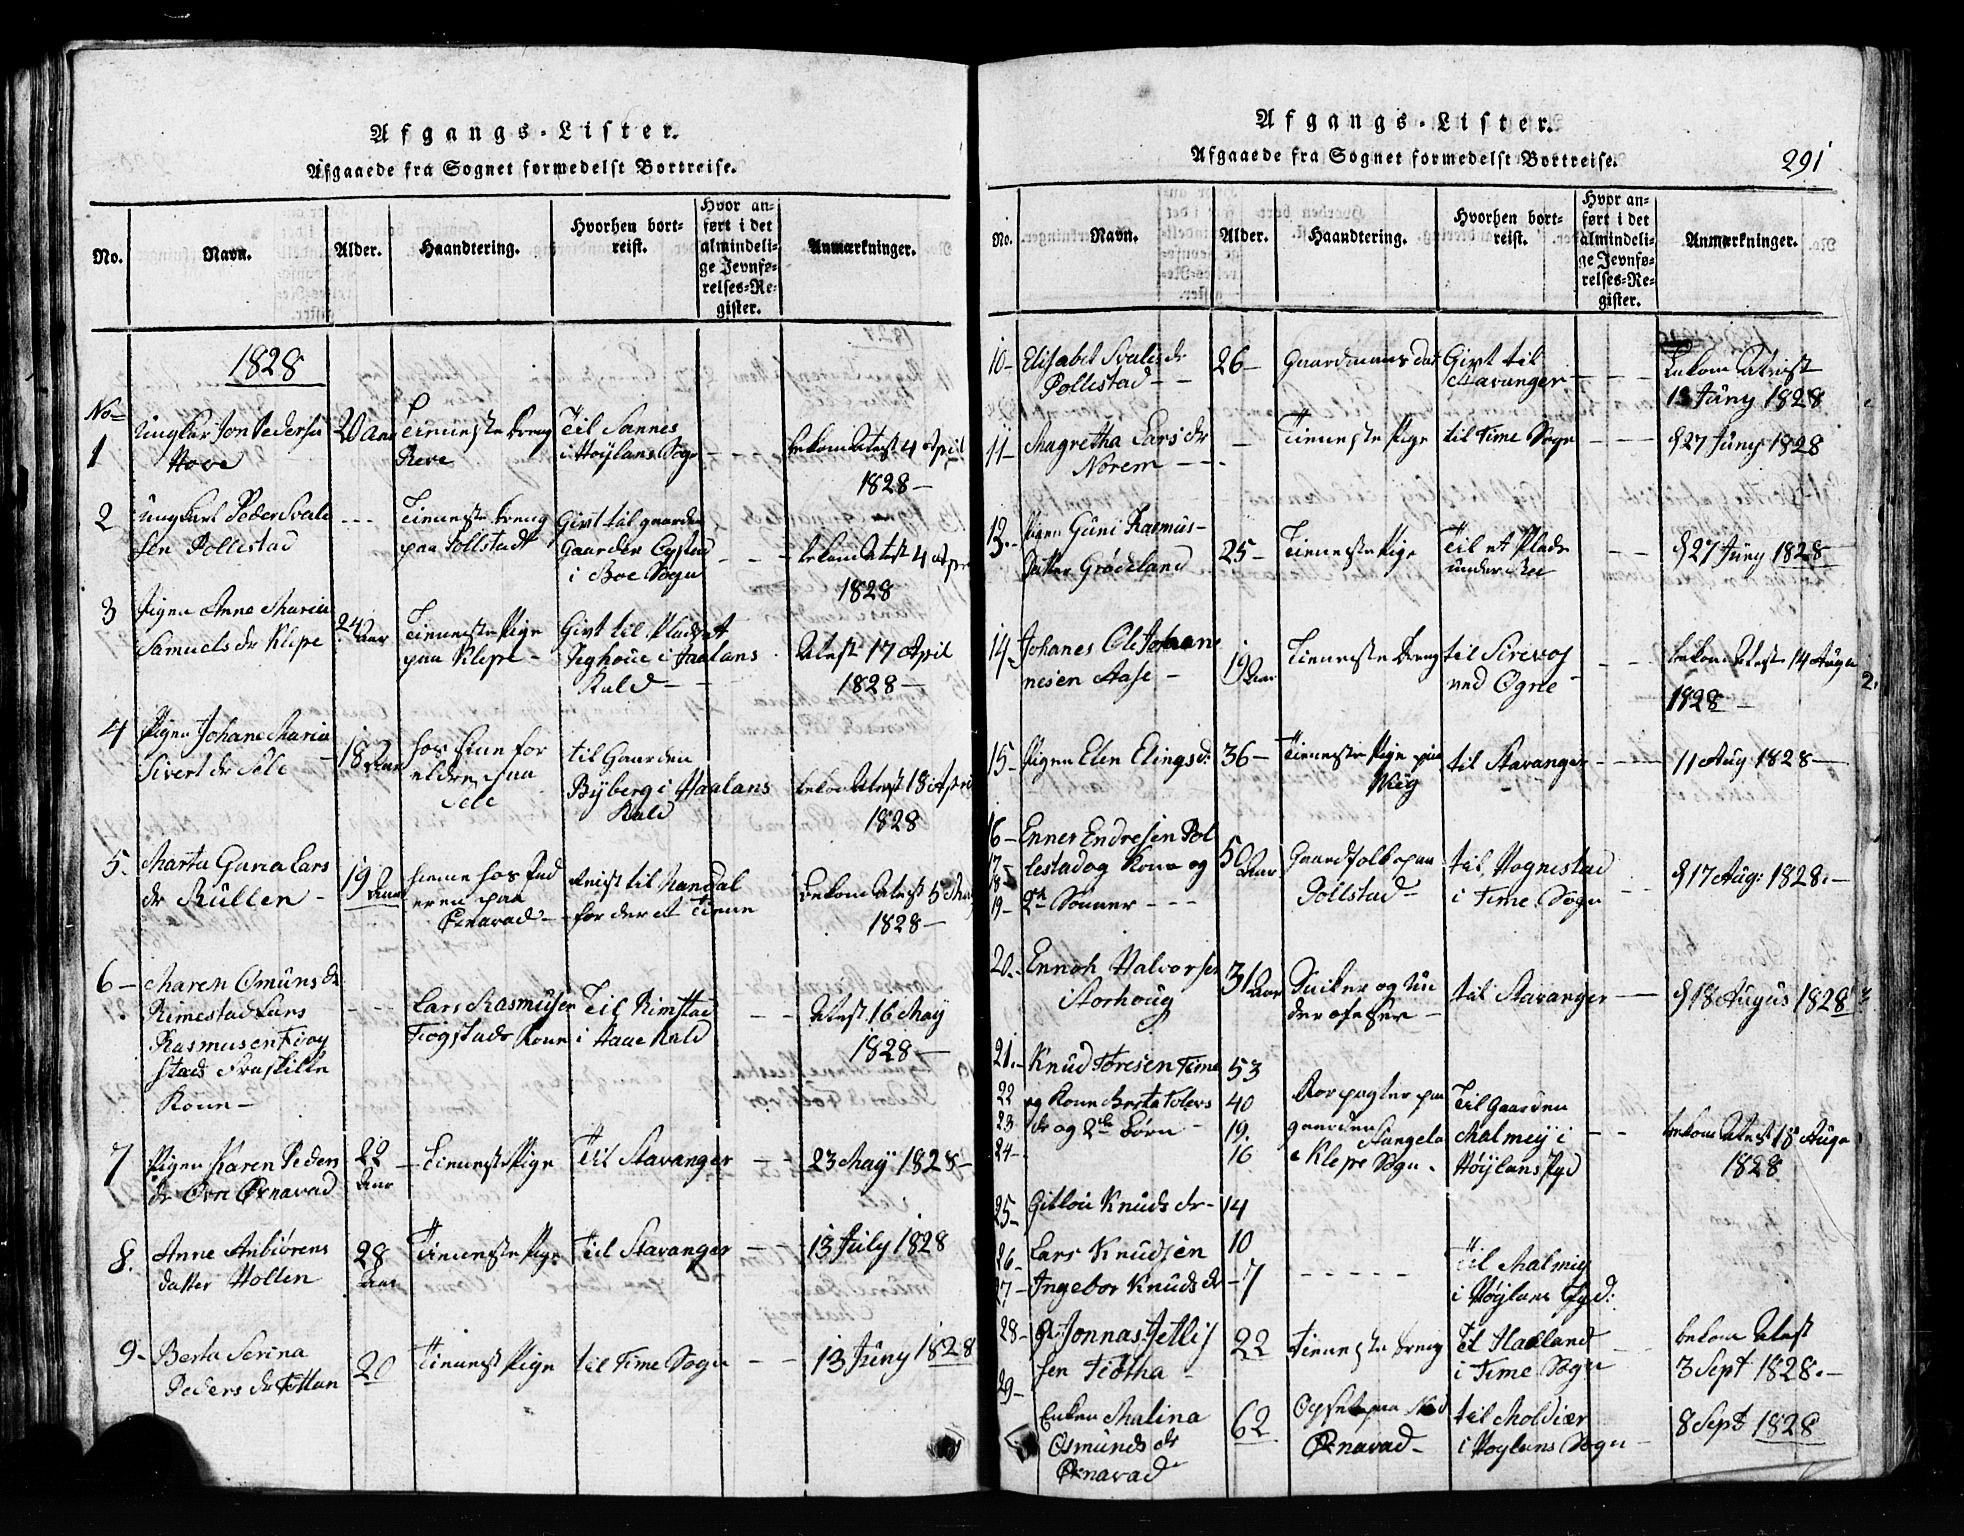 Afgangs-Lister.
Afgaaede fra Sognet formedelst Bortreise.
No.
Navn.
Alder.
Haandtering.
Hvorhen bort-
reist.
Hvor an-
ført i det
almindeli-
ge Jevnfø-
relses-Re-
gister.
Anmærkninger.
1828
No
1
Ungkar Jon Pedersen
Hove
20 Aar
Tieneste dreng
Reve
Til Sannes
i Høylans Sogn
bekom Atest 4 April
1828
2
Ungkarl Peder Svale
sen Pollestad
Tieneste dreng
paa Pollstad
Givt til gaarden
Gaarden
i Boe Sogn
bekom Atest 4 Apr
1828
3
Pigen Anne Maria
Samuels dr Klepe
24 Aar
Tieneste Pige
paa Klepe
Givt til Pladset
i Haalans
Kald
Atest 17 April
1828
4
Pigen Johane Maria
Sivert dr Sele
18 Aar
hos sine for
eldre paa
Sele
til Gaarden
Byberg i Haalans
Kald
bekom Atest 18 Apri
1828
5.
Marta Lars
dr
19 Aar
hieme hos
paa
Ernavad
Reist til Mandal
for der at Tiene
Bekom Atest 5 May
1828
6
Maren Omuns dr
Rimestad Lars
Rasmusen
stads Fraskilte
Kone
Lars Rasmusen
Kone
Til Rimstad
i Haae Kald
Atest 16 May
1828
7
Pigen Karen Peders
dr Øvre Ernavad
22
Aar
Tieneste Pige
Til Stavanger
23 May 1828
8.
Anne Anbiørens
datter Holten
28
Aar
Tieneste Pige
Til Stavanger
13 July 1828
9
Berta Serina
Peders dr
20
Tienest Pige
til Time Sogn
13 Juny 1828
Afgangs-Lister.
Afgaaede fra Sognet formedelst Bortreise.
291
No.
Navn.
Alder.
Haandtering.
Hvorhen bort-
reist.
Hvor an-
ført i det
almindeli-
ge Jevnfø-
relses-Re-
gister.
Anmærkninger.
10
Elisabet Svales dr
Pollestad
26
Gaardmans dat
Givt til
Stavanger
Bekom Atest
13 Juny 1828
11
Magretha Lars dr
Norem
Tieneste Pige
til Time Sogn
d 27 Juny 1828
13.
Pigen Guni Rasmus
Datter Grødeland
25
Tieneste Pige
Til et Plads
under Ree
d 27 Juny 1828
14
Johanes Ole Johan
nesen Aase
19 Aar
Tieneste Dreng
til Sirevog
ved Ogne
bekom Atest 14 Augu
1828
15
Pigen Elen Elings d:
36
Tieneste Pige paa
Wiig
til Stavanger
11 Aug 1828
16
17
18
19
Enner Endresen Pol
lestad og Kone og
2de Sønner
50 Aar
Gaardfolk paa
Pollstad
til Hognestad
i Time Sogn
d 17 Aug: 1828.
20.
Ennok Halvorsen
Storhoug
31 Aar
Sniker og Un
der ofeser
til Stavanger
d 18 Augus 1828
21.
22
23
24
Knud Toresen Time
og Kone Berta Tolevs
dr og 2de Børn
53
40
19.
16
Forpagter paa
gaarden Stangela
i Klepe Sogn
Til Gaarden
Malmey i
Høylans Fyd
bekom Atest 18 Augu
1828
25
Knuds dr
14
26
Lars Knudsen
10
27
Ingebor Knuds dr
7
Til Malmey
i Høylans Fyd:
28
Jonnas
sen Tiøtha
22
Tieneste dreng
Til Haaland
i Time Sogn
bekom Atest
3 Sept 1828.
29
Enken Malina
Osmunds dr
Ernavad
62
paa Ned
Ernavad
til
i Høylans Sogn
8 Sept 1828